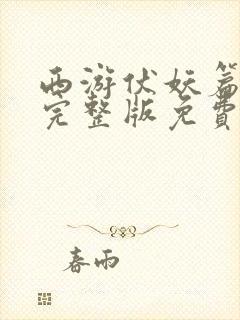 西游伏妖篇
完整版免費
春雨